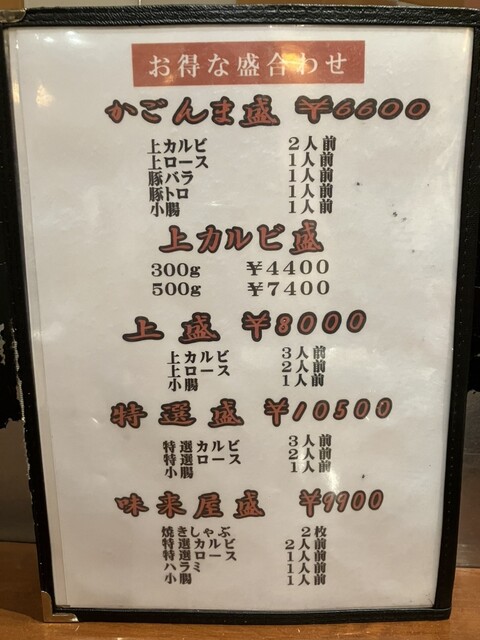 お得な盛合わせ
かごんま盛 ¥6600
上カルビ 2人前
上ロース 1人前
豚バラ 1人前
豚トロ 1人前
小腸 1人前
上カルビ盛
300g ¥4400
500g ¥7400
上盛 ¥8000
上カルビ 3人前
上ロース 2人前
小腸 1人前
特選盛 ¥10500
特選カルビ 3人前
特選ロース 2人前
小腸 1人前
味来屋盛 ¥9900
焼きしゃぶ 2枚
特選カルビ 2人前
特選ロース 1人前
ハラミ 1人前
小腸 1人前